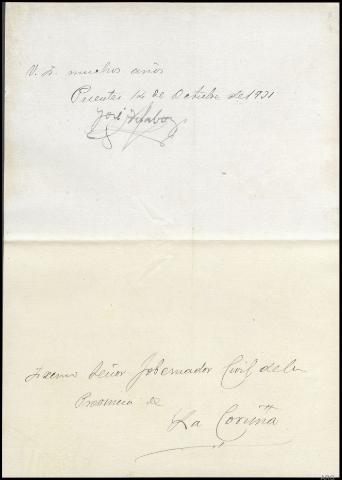 V. E. muchos años
Puentes 14 de Octubre de 1931
José
Excmo Señor Gobernador Civil de la
Provincia de
La Coruña